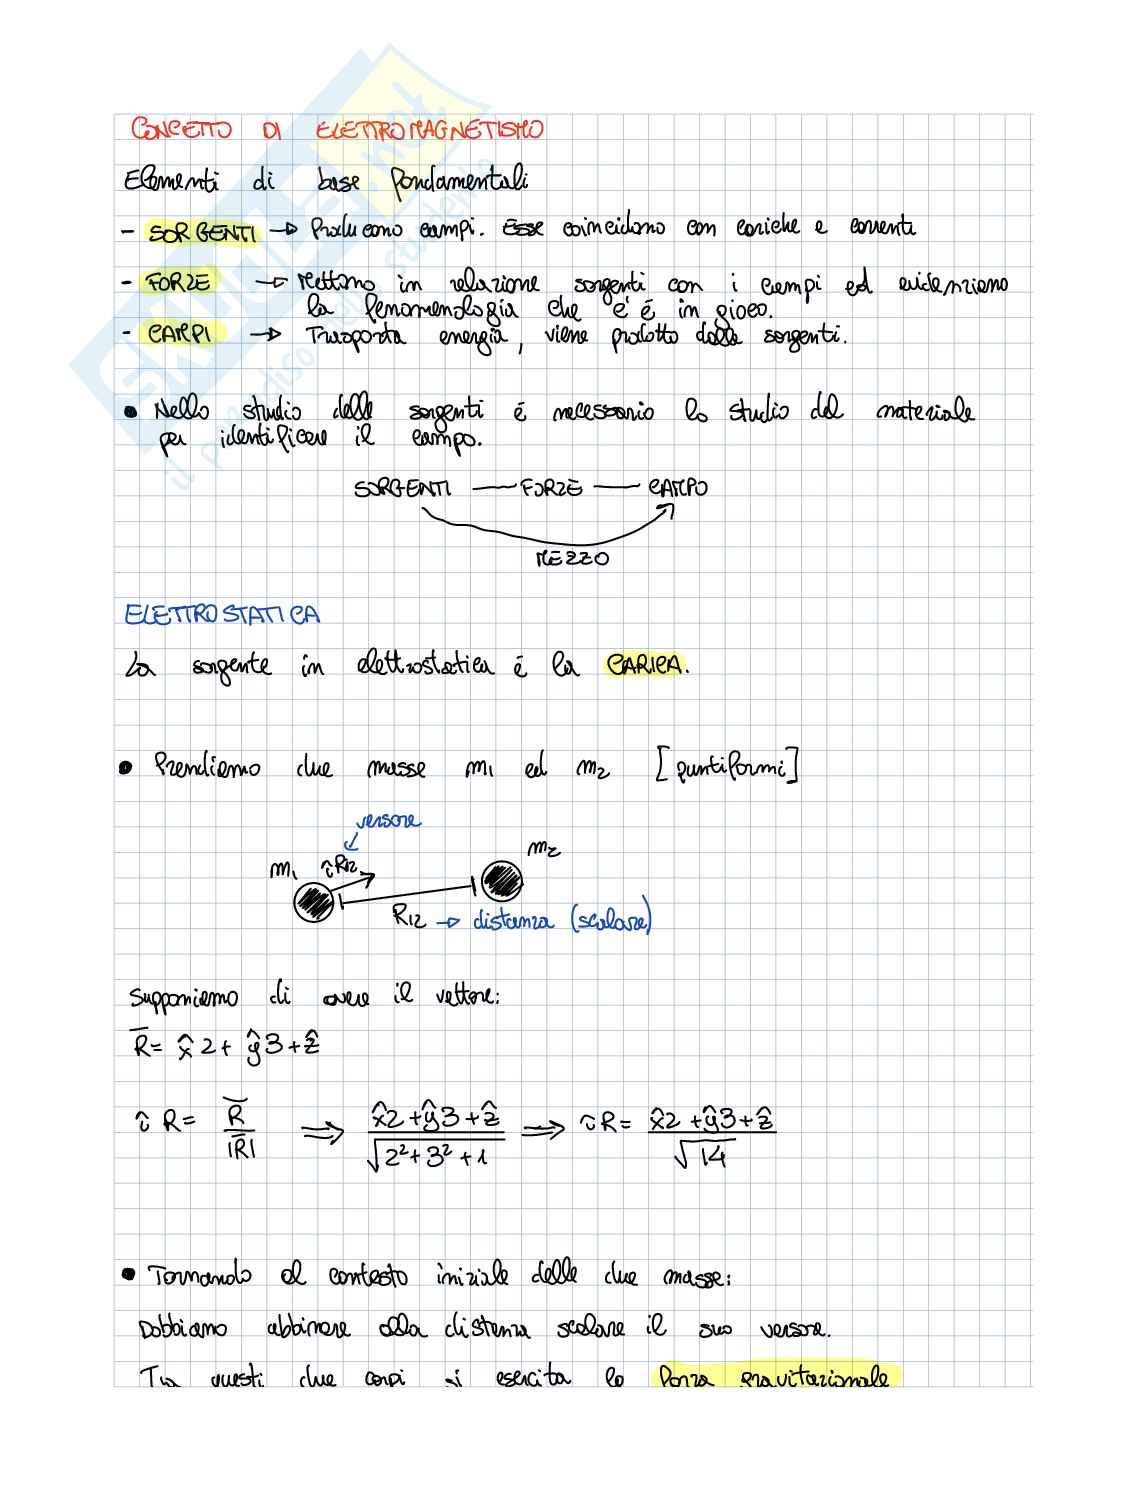 CONCETTO DI ELETTROMAGNETISMO
Elementi di base fondamentali
- SORGENTI → Producono campi. Esse coincidono con cariche e correnti
- FORZE → Mettono in relazione sorgenti con i campi ed evidenziano
la fenomenologia che c'é in gioco.
- CAMPI → Trasporta energia, viene prodotto dalle sorgenti.
• Nello studio delle sorgenti é necessario lo studio del materiale
per identificare il campo.
SORGENTI — FORZE — CAMPO
MEZZO
ELETTROSTATICA
La sorgente in elettrostatica é la CARICA.
• Prendiamo due masse m1 ed m2 [puntiformi]
versore
m1 îR12 m2
R12 → distanza (scalare)
Supponiamo di avere il vettore:
R̅ = x̂2 + ŷ3 + ẑ
î R = R̅ / |R̅| ⟹ x̂2 + ŷ3 + ẑ / √2² + 3² + 1 ⟹ îR = x̂2 + ŷ3 + ẑ / √14
• Tornando al contesto iniziale delle due masse:
Dobbiamo abbinare alla distanza scalare il suo versore.
Tra questi due corpi si esercita la forza gravitazionale
SKUOLA.net
il paradiso dello studente